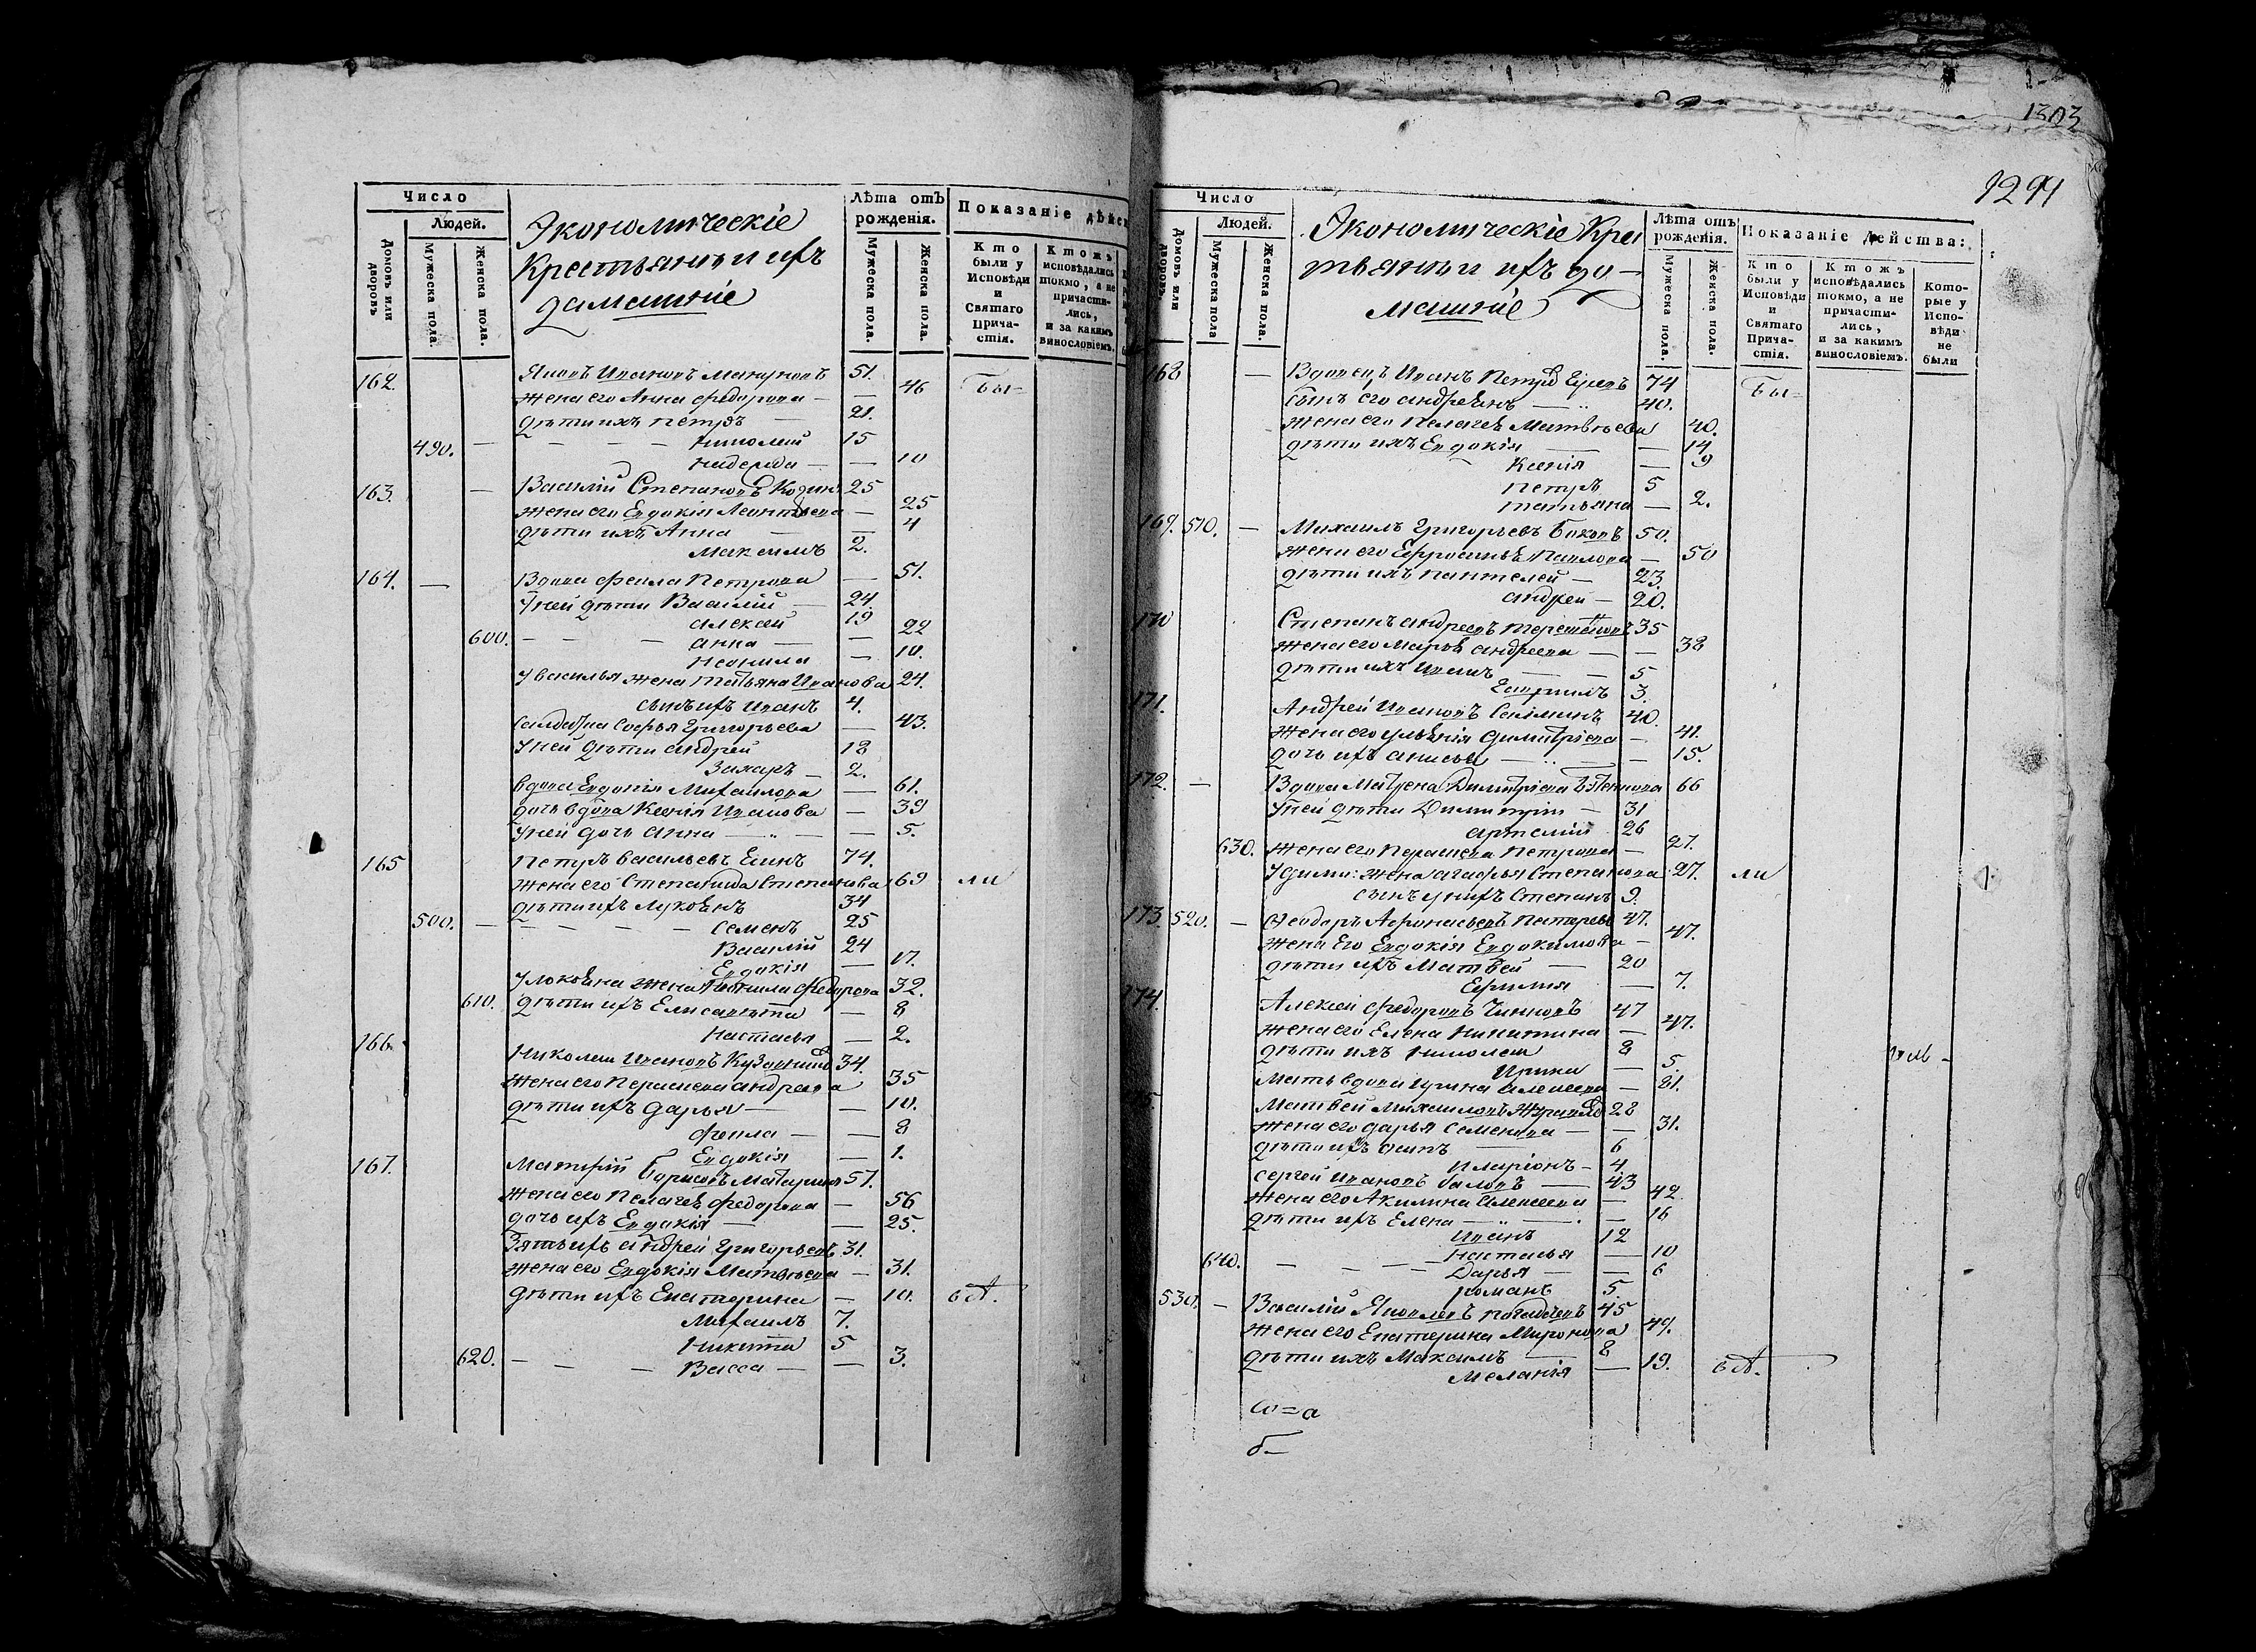 Число
Людей.
Домовъ или дворовъ
Мужеска пола.
Женска пола.
Экономическіе
Крестьяны и ихъ
дамашніе
Лѣта отъ рожденія.
Мужеска пола.
Женска пола.
Показаніе дѣйс
Кто были у Исповѣди и Святаго Причастія.
Ктожъ исповѣдались токмо, а не причастились, и за какимъ винословіемъ.
162. 51.
жена его Анна Федорова — — 46 Бы=
дѣти ихъ Петръ — 21.
490. — — — — Николай 15
Надежда — — 10
163. — Василій Степановъ 25
жена его Евдокія Леонтьева — 25
дѣти ихъ Анна — — 4
Максимъ 2.
164. — Вдова Фекла Петрова — 51.
У ней дѣти Василій — 24
Алексѣй 19
600. — — — Анна — — 22
Неонила — 10.
У василья жена Татьяна Иванова 24.
сынъ ихъ Иванъ 4.
Салдатка Софья Григорьева — 43.
У ней дѣти Андрей 18
Захаръ — 2.
вдова Евдокія Михаилова — 61.
дочь вдова Ксенія Иванова — 39
У ней дочь Анна — — — 5.
165 Петръ Васильевъ 74.
жена его Степанида Степанова 69 ли
дѣти ихъ Лукоянъ 34
500. — — — — — Семенъ 25
Василій 24
Евдокія — 17.
У Лукояна жена Федорова 32.
610. дѣти ихъ Елисавета — 8
Настасья — 2.
166. Николай Ивановъ 34.
жена его Параскева Андреева 35
дѣти ихъ Дарья — — 10.
Фекла — — 8
Евдокія — 1.
167. Матвѣй Борисовъ 57.
жена его Пелагея Федорова — 56
дочь ихъ Евдокія — — 25.
Зять ихъ Андрей Григорьевъ 31.
жена его Евдокія Матвѣева — 31.
дѣти ихъ Екатерина — 10.
Михаилъ 7.
Никита 5
620. — — — Васса — — 3.
1303
1294
Число
Людей.
Домовъ или дворовъ.
Мужеска пола
Женска пола.
Экономическіе Крес
тьяны и ихъ до-
машніе
Лѣта отъ рожденія.
Мужеска пола.
Женска пола.
Показаніе Дѣйства:
Кто были у Исповѣди и Святаго Причастія.
Ктожъ исповѣдались токмо, а не причастились, и за какимъ винословіемъ.
Которые у Исповѣди не были
168 — Вдовецъ Иванъ Петровъ 74 Бы=
сынъ его Андреянъ — 40.
жена его Пелагея Матвѣева 40.
дѣти ихъ Евдокія — — 14
Ксенія — 9
Петръ 5
Татьяна — 2.
169. 510. — Михаилъ Григорьевъ Быковъ 50.
жена его Ефросинья Павлова — 50
дѣти ихъ Пантелей — 23.
Андрей — 20.
170 Степанъ Андреевъ 35
жена его Марья Андреева — — 38
дѣти ихъ — — 5
Гавріилъ 3.
171. Андрей Ивановъ 40.
жена его Ульянія Димитріева — 41.
дочь ихъ Анисья — — — 15.
172. — Вдова Матрена Димитріева 66
У ней дѣти Димитрій — 31
Артемій 26
630. жена его Параскева Петрова — 27.
У Дими: жена Агафья Степанова 27. ли
сынъ у нихъ Степанъ 9.
173. 520. — Феодоръ Афонасьевъ 47.
жена Его Евдокія Евдокимова — 47.
дѣти ихъ Матвей — 20
Ефимія — 7.
174. Алексѣй Федоровъ 47
жена его Елена Никитина — 47.
дѣти ихъ Николай 8
Ирина — 5.
Мать вдова Ирина Алексеева — 81.
Матвей Михаиловъ 28
жена его Дарья Семенова — — 31.
дѣти ихъ Осипъ — 6
Иларіонъ — 4
Сергей Ивановъ 43
жена его Акилина Алексеева — 42.
дѣти ихъ Елена — — — 16
Иванъ 12
Настасья — 10
640. — — — — Дарья — — 6
Романъ 5.
530. — Василій Яковлевъ 45
жена его Екатерина Миронова 49.
дѣти ихъ Максимъ — 8
Меланія — 19.